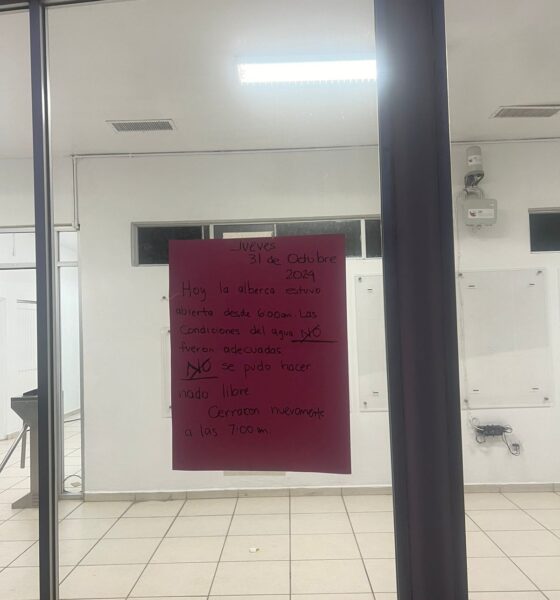 Jueves
31 de Octubre
2024
Hoy la alberca estuvo
abierta desde 6:00am. Las
Condiciones del agua NO
fueron adecuadas
NO se pudo hacer
nado libre
Cerraron nuevamente
a las 7:00 m.